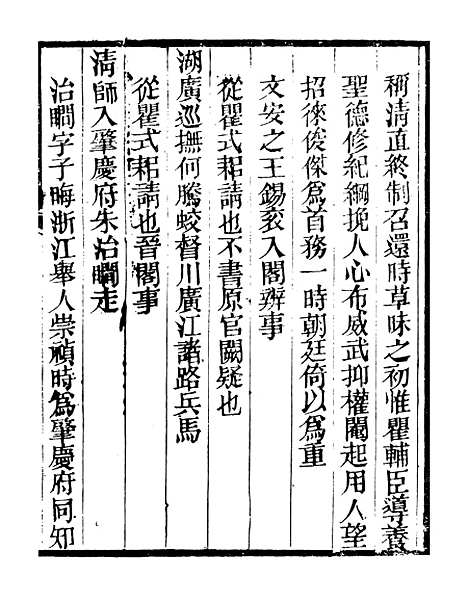 稱清直終制召還時草昧之初惟瞿輔臣導養
聖德修紀綱挽人心布威武抑權閹起用人望
招徠俊傑爲首務一時朝廷倚以爲重
文安之王錫衮入閣辦事
從瞿式耜請也不書原官闕疑也
湖廣巡撫何騰蛟督川廣江諸路兵馬
從瞿式耜請也晉閣事
清師入肇慶府朱治𢣾走
治𢣾字子晦浙江舉人崇禎時爲肇慶府同知